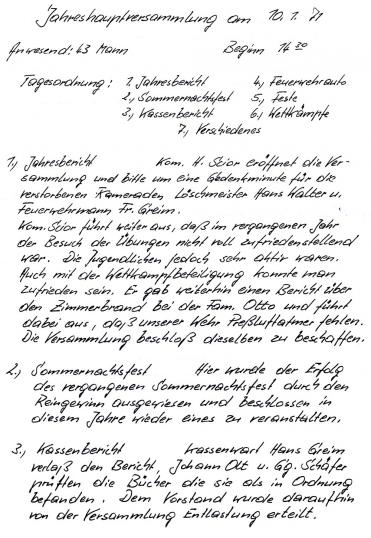 Jahreshauptversammlung am 10.1.71
Anwesend: 43 Mann Beginn 14 30
Tagesordnung: 1, Jahresbericht 4, Feuerwehrauto
2., Sommernachtsfest 5., Feste
3., Kassenbericht 6., Wettkämpfe
7., Verschiedenes
1., Jahresbericht Kom. H. Stior eröffnet die Ver-
sammlung und bitte um eine Gedenkminute für die
verstorbenen Kameraden Löschmeister Hans Walter u.
Feuerwehrmann Fr. Greim.
Kom. Stior führt weiter aus, daß im vergangenen Jahr
der Besuch der Übungen nicht voll zufriedenstellend
war. Die Jugendlichen jedoch sehr aktiv waren.
Auch mit der Wettkampfbeteiligung konnte man
zufrieden sein. Er gab weiterhin einen Bericht über
den Zimmerbrand bei der Fam. Otto und führt
dabei aus, daß unserer Wehr Preßluftatmer fehlen.
Die Versammlung beschloß dieselben zu beschaffen.
2., Sommernachtsfest Hier wurde der Erfolg
des vergangenen Sommernachtsfest durch den
Reingewinn ausgewiesen und beschlossen in
diesem Jahre wieder eines zu veranstalten.
3., Kassenbericht Kassenwart Hans Greim
verlaß den Bericht, Johann Ott u. Gg. Schäfer
prüften die Bücher die sie als in Ordnung
befanden. Dem Vorstand wurde daraufhin
von der Versammlung Entlastung erteilt.